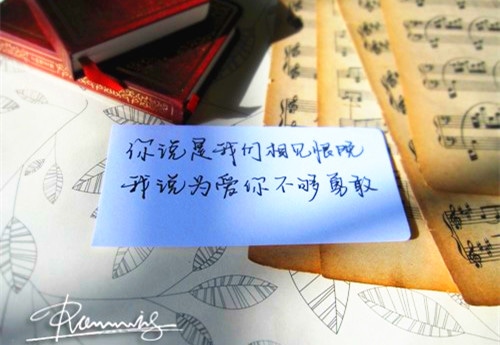 你说是我们相见恨晚
我说为爱你不够勇敢